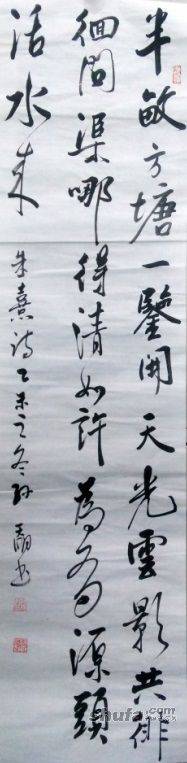 半畝方塘一鑒開天光雲影共徘
徊問渠哪得清如許為有源頭
活水来
朱熹詩乙未之冬孙
书